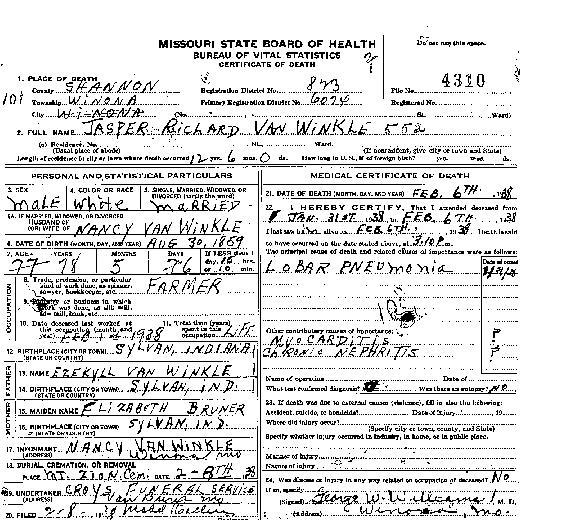 MISSOURI STATE BOARD OF HEALTH
BUREAU OF VITAL STATISTICS
CERTIFICATE OF DEATH
Do not use this space.
1. PLACE OF DEATH
County SHANNON
Registration District No. 823
File No. 4310
101 Township WINONA
Primary Registration District No. 6024
Registered No.
City WINONA No. St. Ward)
2. FULL NAME JASPER RICLARD VAN WINKLE 552
(a) Residence. No. St. Ward.
(Usual place of abode) (If nonresident, give city or town and State)
Length of residence in city or town where death occurred 12 yrs. 6 mos. 0 ds. How long in U. S., if of foreign birth? yrs. mos. ds.
PERSONAL AND STATISTICAL PARTICULARS
3. SEX 4. COLOR OR RACE 5. SINGLE, MARRIED, WIDOWED, OR DIVORCED (write the word)
Male White MARRIED
5A. IF MARRIED, WIDOWED, OR DIVORCED
HUSBAND OF
(OR) WIFE OF NANCY VAN WINKLE
6. DATE OF BIRTH (MONTH, DAY, AND YEAR) AUG 30, 1859
7. AGE YEARS MONTHS DAYS If LESS than 1 day, hrs. or min.
5
OCCUPATION
8. Trade, profession, or particular kind of work done, as spinner, sawyer, bookkeeper, etc. FARMER
9. Industry or business in which work was done, as silk mill, saw mill, bank, etc.
10. Date deceased last worked at this occupation (month and year) FEB. 1938
11. Total time (years) spent in this occupation LIFE
12. BIRTHPLACE (CITY OR TOWN) SYLVAN, INDIANA
(STATE OR COUNTRY)
FATHER
13. NAME EZEKYLL VAN WINKLE
14. BIRTHPLACE (CITY OR TOWN) SYLVAN, IND.
(STATE OR COUNTRY)
MOTHER
15. MAIDEN NAME ELIZABETH BRUNER
16. BIRTHPLACE (CITY OR TOWN) SYLVAN, IND.
(STATE OR COUNTRY)
17. INFORMANT NANCY VAN WINKLE
(ADDRESS) Winona Mo
18. BURIAL, CREMATION, OR REMOVAL
PLACE MT. ZION Cem. DATE 2-8TH 38
19. UNDERTAKER CROYS FUNERAL SERVICE
(ADDRESS) Van Buren Mo
20. FILED 2-8
MEDICAL CERTIFICATE OF DEATH
21. DATE OF DEATH (MONTH, DAY, AND YEAR) FEB. 6TH 38
22. I HEREBY CERTIFY, That I attended deceased from
JAN. 31ST 38 to FEB. 6TH 38
I last saw h alive on FEB 6TH 38 Death is said
to have occurred on the date stated above, at 3:10 P.m.
The principal cause of death and related causes of importance were as follows:
LOBAR PNEUMONIA
Date of onset
Other contributory causes of importance:
MYOCARDITIS
CHRONIC NEPHRITIS
Name of operation Date of
What test confirmed diagnosis? Was there an autopsy? NO
23. If death was due to external causes (violence), fill in also the following:
Accident, suicide, or homicide? Date of injury 19
Where did injury occur?
(Specify city or town, county, and State)
Specify whether injury occurred in industry, in home, or in public place.
Manner of injury
Nature of injury
24. Was disease or injury in any way related to occupation of deceased? NO
If so, specify
(Signed) George W. Williams M. D.
(Address) Winona, Mo.